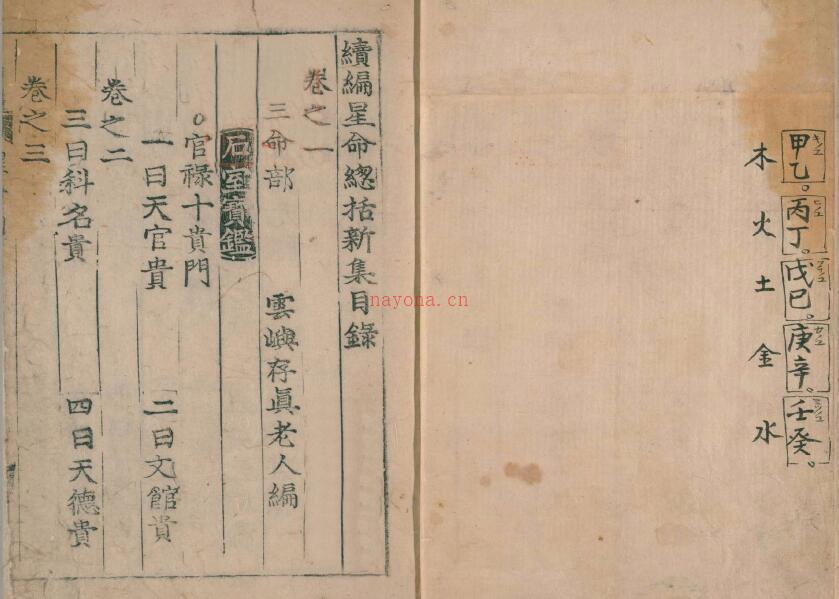 甲乙。丙丁。戊己。庚辛。壬癸。
木火土金水
續編星命總括新集目錄
卷之一
三命部 雲嶼存眞老人編
石室寶鑑
○官祿十貴門
一曰天官貴 二曰文館貴
卷之二
三曰科名貴 四曰天德貴
卷之三
nayona.cn